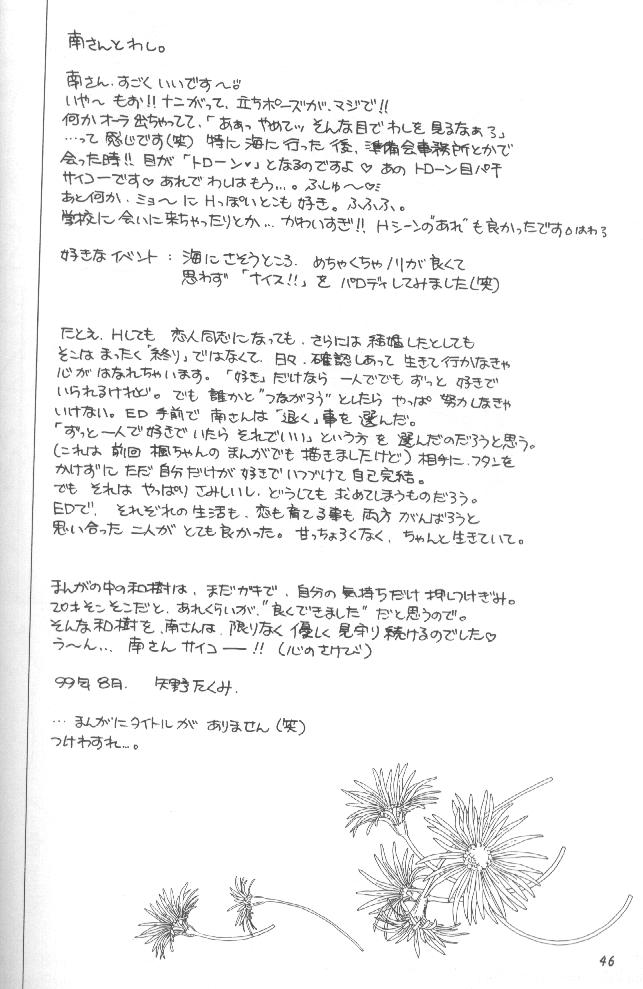 南さんとわし。
南さん、すごくいいです〜
いや〜 もお!! ナニがって、立ちポーズが、マジで!!
何かオーラ出ちゃってて、「あぁっ やめてッ そんな目でわしを見るなぁろ」
…って 感じです(笑) 特に 海に行った 後、準備会事務所とかで
会った時!! 目が「トローン♥」となるのですよ♡ あの トローン目パチ
サイコーです♡ あれでわしはもう…。ふしゅ〜♡
あと何か、ミョ〜に Hっぽいとこも 好き。ふふふ、。
学校に 会いに来ちゃったりとか… かわいすぎ!! Hシーンの"あれ"も良かったです はわろ
好きな イベント : 海に さそうところ、めちゃくちゃノリが良くて
思わず 「ナイス!!」を パロディしてみました(笑)
たとえ、Hしても 恋人同志になっても、さらには 結婚したとしても
そこは まったく「終り」ではなくて、日々、確認しあって 生きて行かなきゃ
心が はなれちゃいます。「好き」だけなら 一人ででも ずっと 好きで
いられるけれど。でも 誰かと"つながろう"としたら やっぱ 努力しなきゃ
いけない。ED 手前で 南さんは「退く」事を 選んだ。
「ずっと一人で好きでいたら それでいい」という方を 選んだのだろうと思う。
(これは 前回 楓ちゃんの まんがでも 描きましたけど) 相手に、フタンを
かけずに ただ 自分だけが 好きでいつづけて 自己完結。
でも それは やっぱり さみしいし、どうしても 求めてしまうものだろう。
EDで、 それぞれの 生活も、恋も 育てる事も 両方 がんばろうと
思い合った 二人が とても良かった。甘っちょろくなく、ちゃんと生きていて。
まんがの中の和樹は、まだガキで、自分の気持ちだけ 押しつけぎみ。
20才そこそこだと、あれくらいが、"良くできました" だと思うので。
そんな 和樹を、南さんは、限りなく 優しく 見守り続けるのでした♡
う〜ん… 南さん サイコ——!! (心のさけび)
99年8月. 矢野たくみ.
… まんがにタイトルが ありません(笑)
つけわすれ…。
46